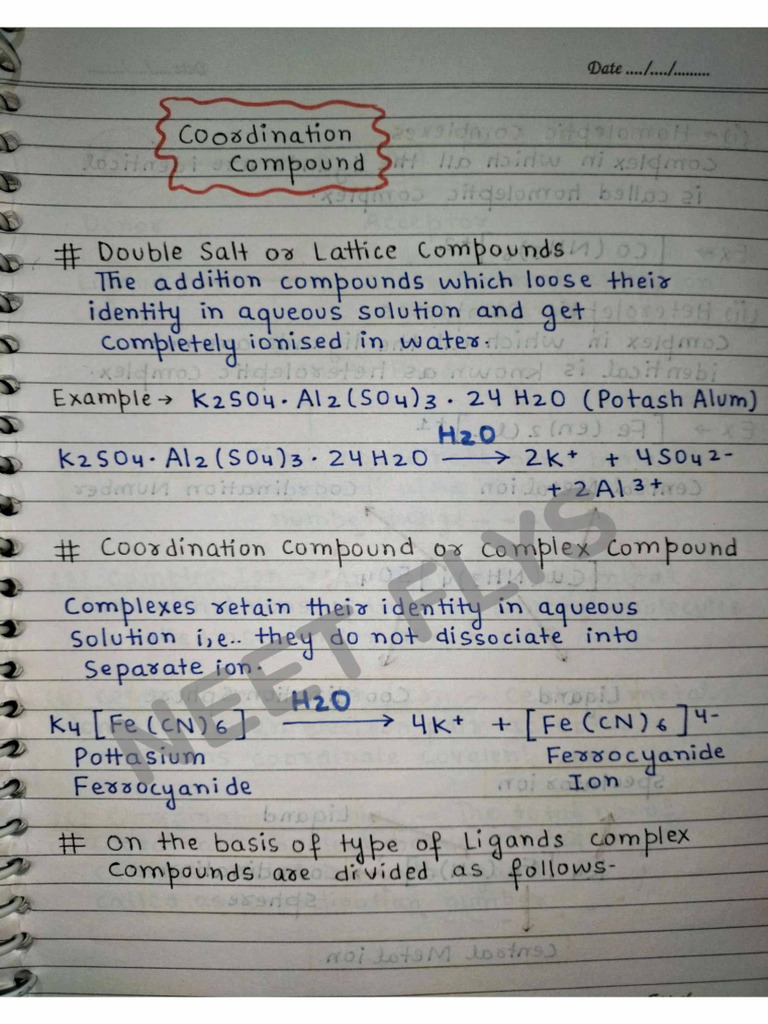 Date ..../..../.........
Coordination
Compound
# Double Salt or Lattice Compounds
The addition compounds which loose their
identity in aqueous solution and get
completely ionised in water.
Example → K2SO4 · Al2(SO4)3 · 24H2O (Potash Alum)
H2O
K2SO4 · Al2(SO4)3 · 24H2O ⟶ 2K+ + 4SO4 2-
+ 2Al 3+
# Coordination Compound or Complex Compound
Complexes retain their identity in aqueous
Solution i,e.. they do not dissociate into
Separate ion.
H2O
K4 [Fe(CN)6] ⟶ 4K+ + [Fe(CN)6]4-
Pottasium Ferrocyanide
Ferrocyanide Ion
# On the basis of type of Ligands complex
Compounds are divided as follows-
NEET FLYS